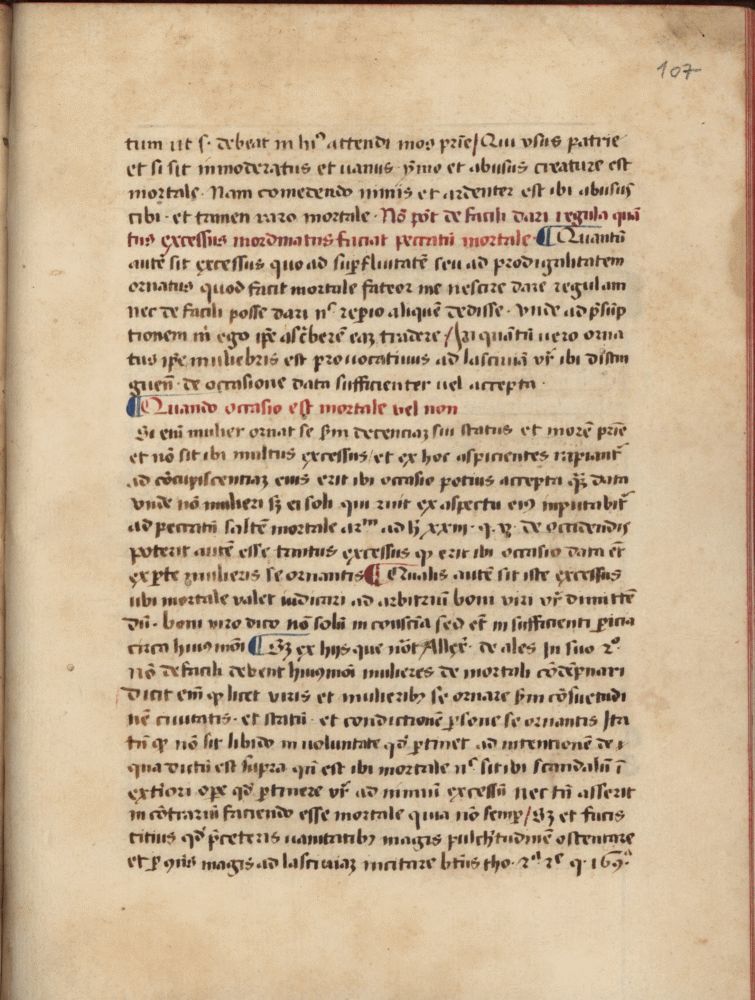 107
tum ut s. debeat in hiis attendi mos prie / Qui usus patrie
et si sit inmoderatus et uanus ymo et abusus creature est
mortale. Nam comedendo nimis et ardenter est ibi abusus
cibi. et tamen raro mortale. Nō pōt de facili dari regula quā
tus excessus inordinatus faciat peccatū mortale. Quantū
autē sit excessus quo ad supfluitatē seu ad prodigalitatem
ornatus quod facit mortale fateor me nescire dare regulam
nec de facili posse dari nc reperio aliquē dedisse. Unde ad psūp
tionem m̄ ego ipē ascberē eaz tradere / In quātū uero orna
tus ipē muliebris est prouocatiuus ad lasciuiā vr ibi distin
guen̄. de occasione data sufficienter uel accepta.
Quando occasio est mortale vel non
Si eni mulier ornat se s̄m decenciaz sui status et morē prie
et nō sit ibi multus excessus / et ex hoc aspicientes rapiant̄
ad cōcupiscentiaz eius erit ibi occasio potius accepta q̄z data
vnde nō mulieri sz ei soli qui ruit ex aspectu eius inputabit̄
ad peccatū saltē mortale ad h xxiii. q. v. de occidendis
poterit autē esse tantus excessus q erit ibi occasio data et̄
ex pte mulieris se ornantis Qualis autē sit iste excessus
ubi mortale valet iudicari ad arbitriū boni viri vr dimittē
dū. boni viro dico nō solū in consciā sed et̄ in sufficienti picia
circa huiusmōi Sz ex hiis que nōt Allex. de ales In suo 2o.
Nō de facili debent huiusmōi mulieres de mortali cōdēpnari
Dicit eni q licet viris et mulierib3 se ornare s̄m cōsuetudi
nē ciuitatis. et statū. et condictionē psone se ornantis Ita
tn̄ q nō sit libido in uoluntate qd ptinet ad intentionē de
qua dictū est supra qn̄ est ibi mortale nc sit ibi scandalū ī
extiori ope qd ptinere vr ad nimiū excessū nec tn̄ asserit
in cōtrariū faciendo esse mortale quia nō semp / Sz et fucis
titius qd pceteris uanitatib3 magis pulchitudinē ostentare
et magis ad lasciuiaz incitare btus tho. 2a 2e q. 169.